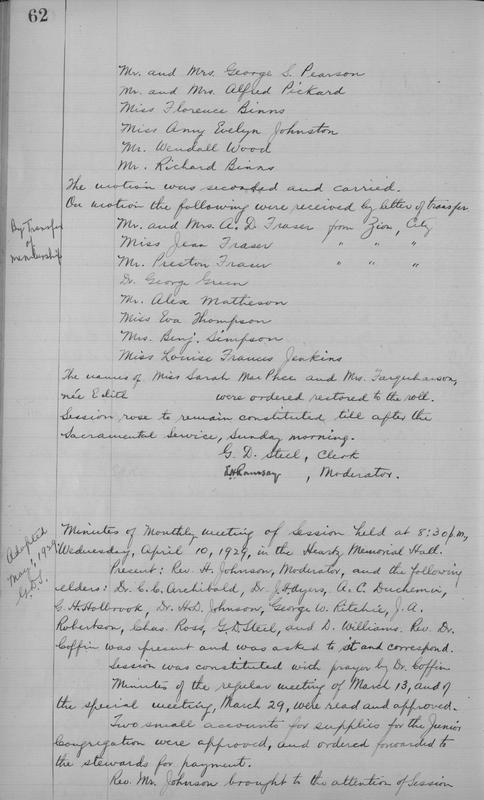 62
Mr. and Mrs. George S. Pearson
Mr. and Mrs. Alfred Pickard
Miss Florence Binns
Miss Amy Evelyn Johnston
Mr. Wendall Wood
Mr. Richard Binns
The motion was seconded and carried.
On motion the following were received by letter of transfer
By Transfer
of
membership
Mr. and Mrs. A. D. Fraser from Zion, City
Miss Jean Fraser " " "
Mr. Preston Fraser " " "
Dr. George Green
Mr. Alex Matheson
Miss Eva Thompson
Mrs. Benj. Simpson
Miss Louise Frances Jenkins
The names of Miss Sarah MacPhee and Mrs. Farquharson,
née Edith were ordered restored to the roll.
Session rose to remain constituted till after the
Sacramental Service, Sunday morning.
G. D. Steel, Clerk
Ramsay, Moderator.
Adopted
May 1, 1929
G.D.S.
Minutes of Monthly meeting of Session held at 8:30 p.m,
Wednesday, April 10, 1929, in the Heartz Memorial Hall.
Present: Rev. H. Johnson, Moderator, and the following
elders: Dr. C. C. Archibald, Dr. Dyers, A. C. Duchemin,
G. H. Holbrook, Dr. H. D. Johnson, George W. Ritchie, J. A.
Robertson, Chas. Ross, G. D. Steel, and D. Williams. Rev. Dr.
Coffin was present and was asked to sit and correspond.
Session was constituted with prayer by Dr. Coffin
Minutes of the regular meeting of March 13, and of
the special meeting, March 29, were read and approved.
Two small accounts for supplies for the Junior
Congregation were approved, and ordered forwarded to
the stewards for payment.
Rev. Mr. Johnson brought to the attention of Session